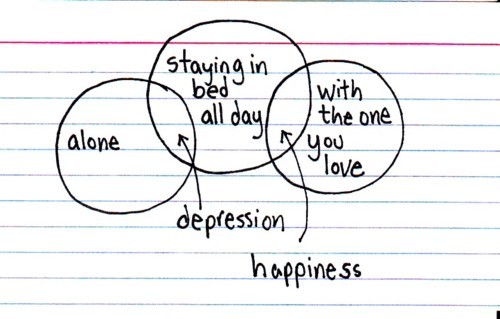 staying in
bed
all day
alone
with
the one
you
love
depression
happiness